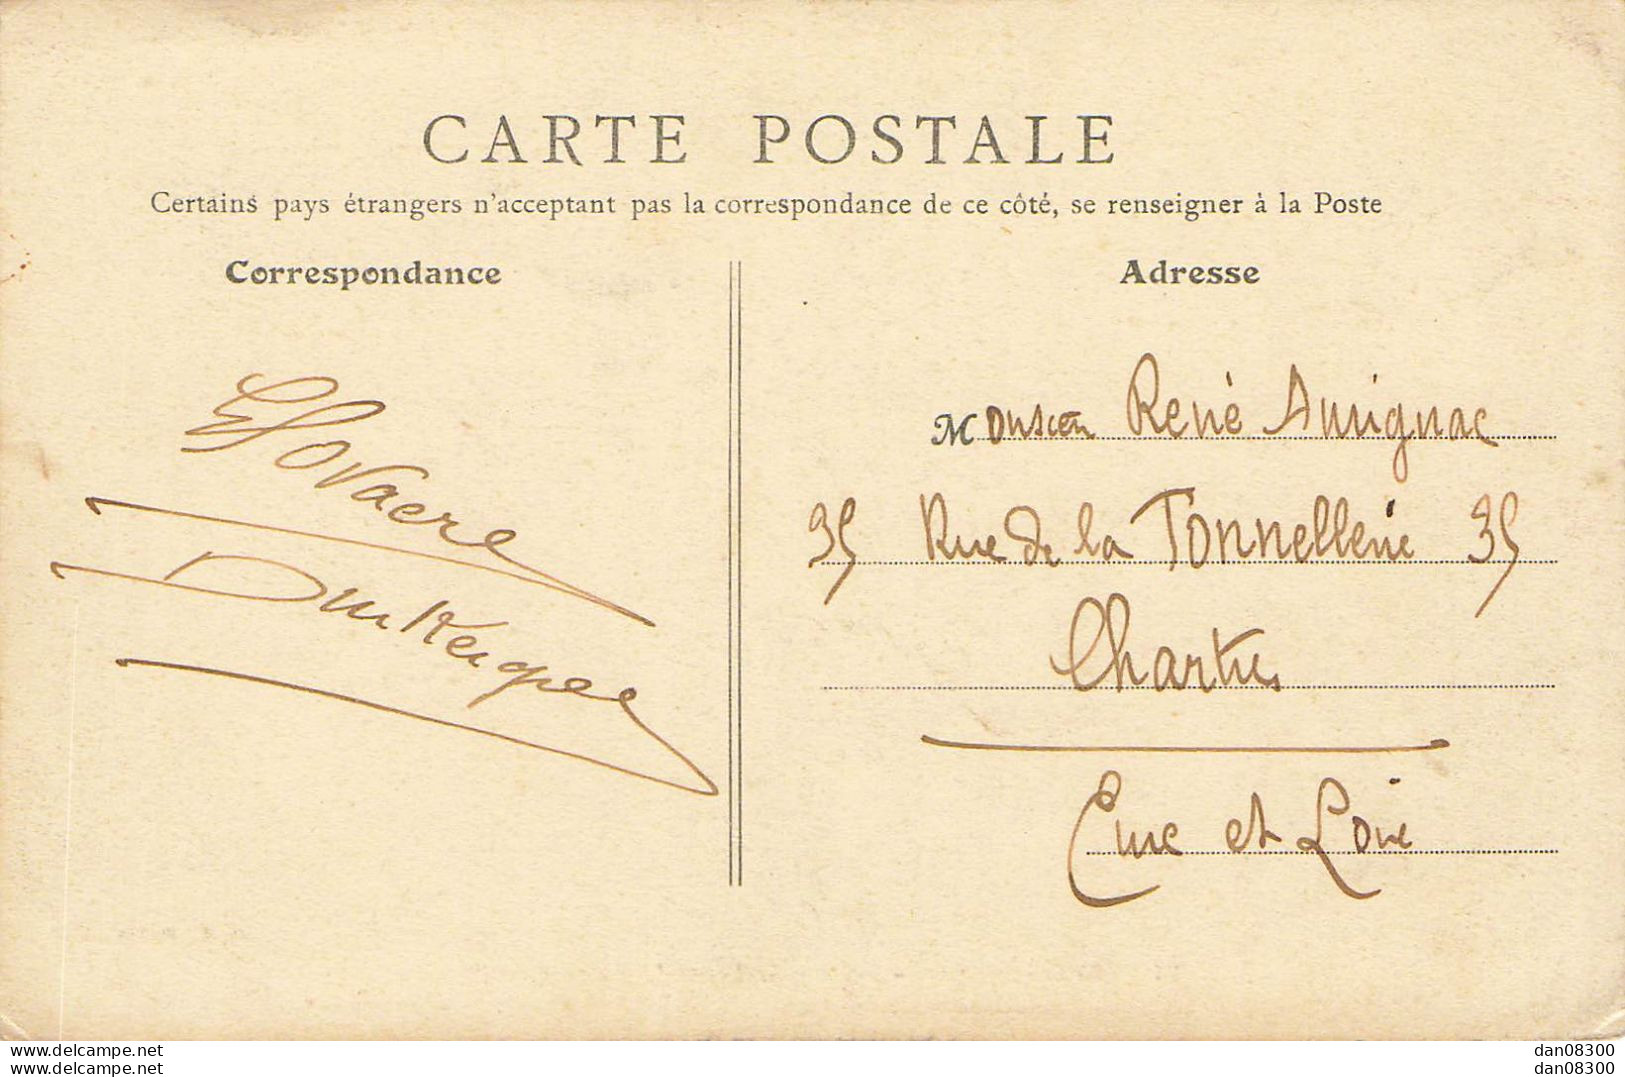 CARTE POSTALE
Certains pays étrangers n'acceptant pas la correspondance de ce côté, se renseigner à la Poste
Correspondance
Adresse
Dunkerque
Monsieur René
35 Rue de la Tonnellerie 35
Chartres
Eure et Loir
www.delcampe.net
www.delcampe.net
dan08300
dan08300